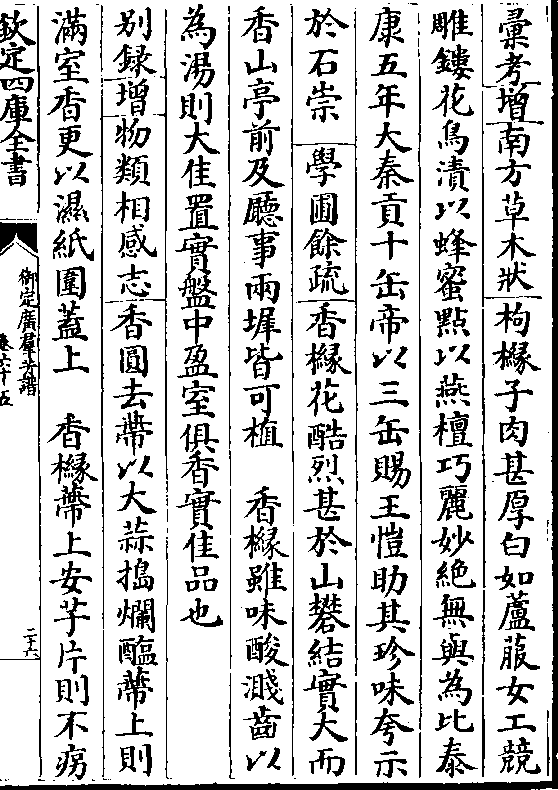 彚考增南方草木狀枸櫞子肉甚厚白如蘆菔女工競
雕鏤花鳥漬以蜂蜜點以燕檀巧麗妙絶無與為比泰
康五年大秦貢十缶帝以三缶賜王愷助其珍味夸示
於石崇　學圃餘疏香櫞花酷烈甚於山礬結實大而
香山亭前及廳事兩墀皆可植　香櫞雖味酸濺齒以
為湯則大佳置實盤中盈室俱香實佳品也
别録增物類相感志香圓去蔕以大蒜搗爛醖蔕上則
滿室香更以濕紙圍蓋上　香櫞蔕上安芋片則不㾪
欽定四庫全書
御定廣羣芳譜
卷六十五
二十六